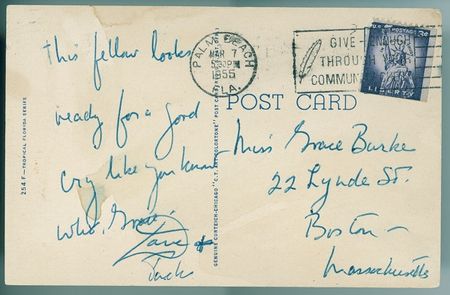 this fellow looks
ready for a good
cry like you know
who, Grace.
Love
Jack
254 F—TROPICAL FLORIDA SERIES
GENUINE CURTEICH-CHICAGO "C.T. ART-COLORTONE" POST CARD
PALM BEACH
MAR 7
530 PM
1955
FLA.
GIVE
THROUGH
COMMUN
POSTAGE 3¢
LIBERTY
POST CARD
Miss Grace Burke
22 Lynde St.
Boston—
Massachusetts